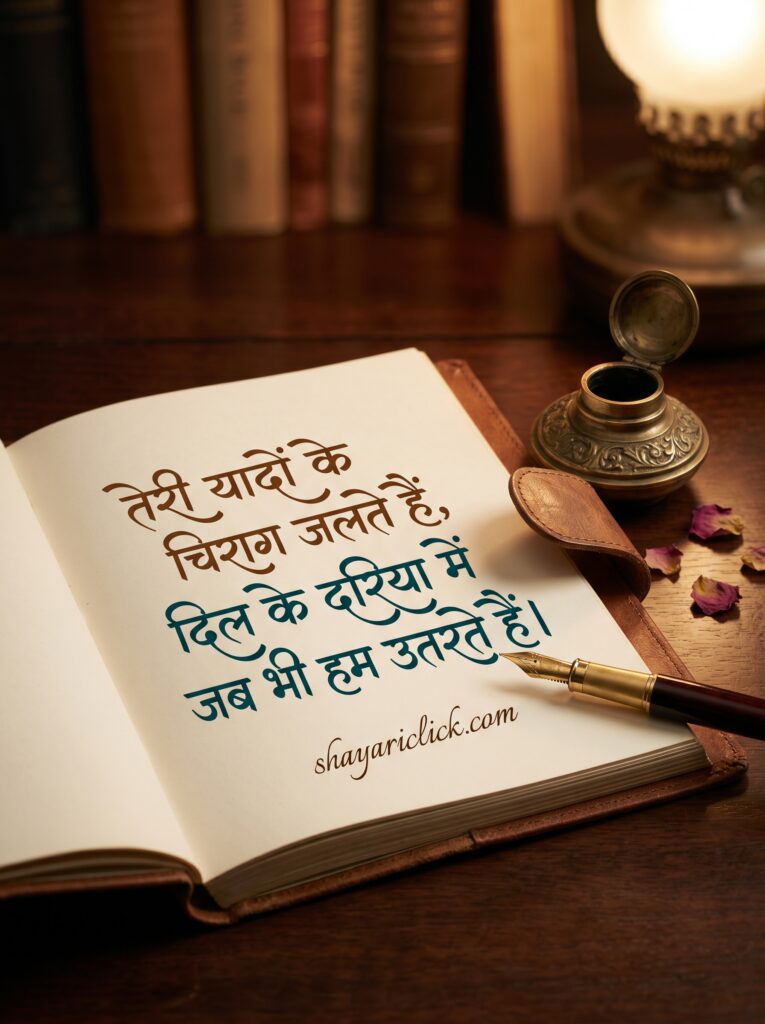 तेरी यादों के
चिराग जलते हैं,
दिल के दरिया में
जब भी हम उतरते हैं।
shayariclick.com